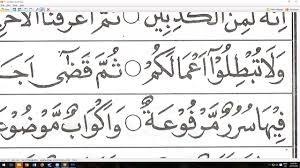 اِنَّهٗ لَمِنَ الْكٰذِبِيْنَ ○ ثُمَّ اَغْرَقْنَا الْاٰخَرِ
وَلَا تُبْطِلُوْٓا اَعْمَالَكُمْ ○ ثُمَّ قَضٰٓى اَجَ
فِيْهَا سُرُرٌ مَّرْفُوْعَةٌ ○ وَّاَكْوَابٌ مَّوْضُوْعَ